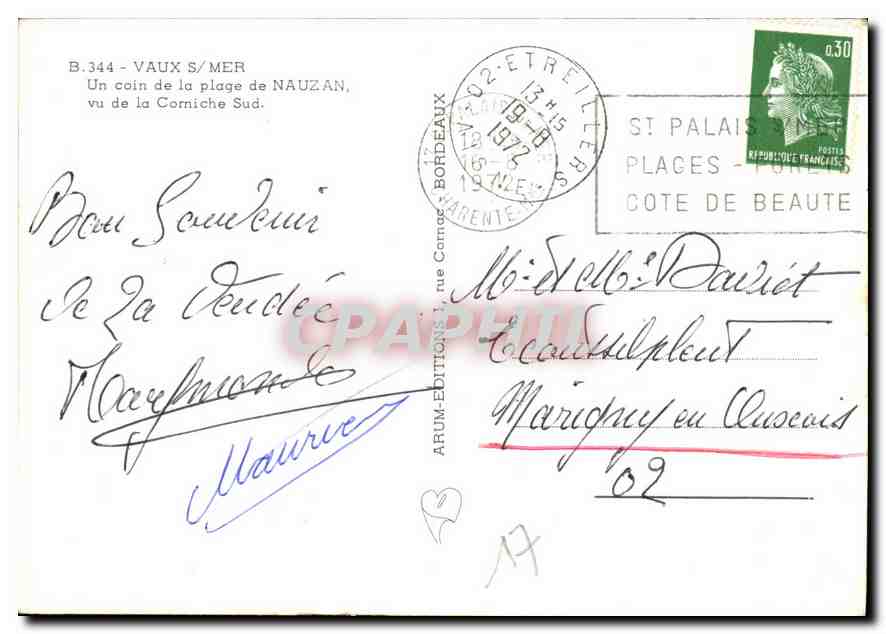 B.344 - VAUX S/MER
Un coin de la plage de NAUZAN,
vu de la Corniche Sud.
Bon Souvenir
de La Vendée
Raymonde
Maurice
ARUM-EDITIONS 1, rue Cornac BORDEAUX
02-ETREILLERS
13 H 15
19-8
1972
17
18 H
16-8
1972
CHARENTE-Mme
ST PALAIS S/MER
PLAGES - FORETS
COTE DE BEAUTE
0,30
POSTES
REPUBLIQUE FRANÇAISE
CPAPHIL
Mr et Me
Marigny en Orxois
02
17